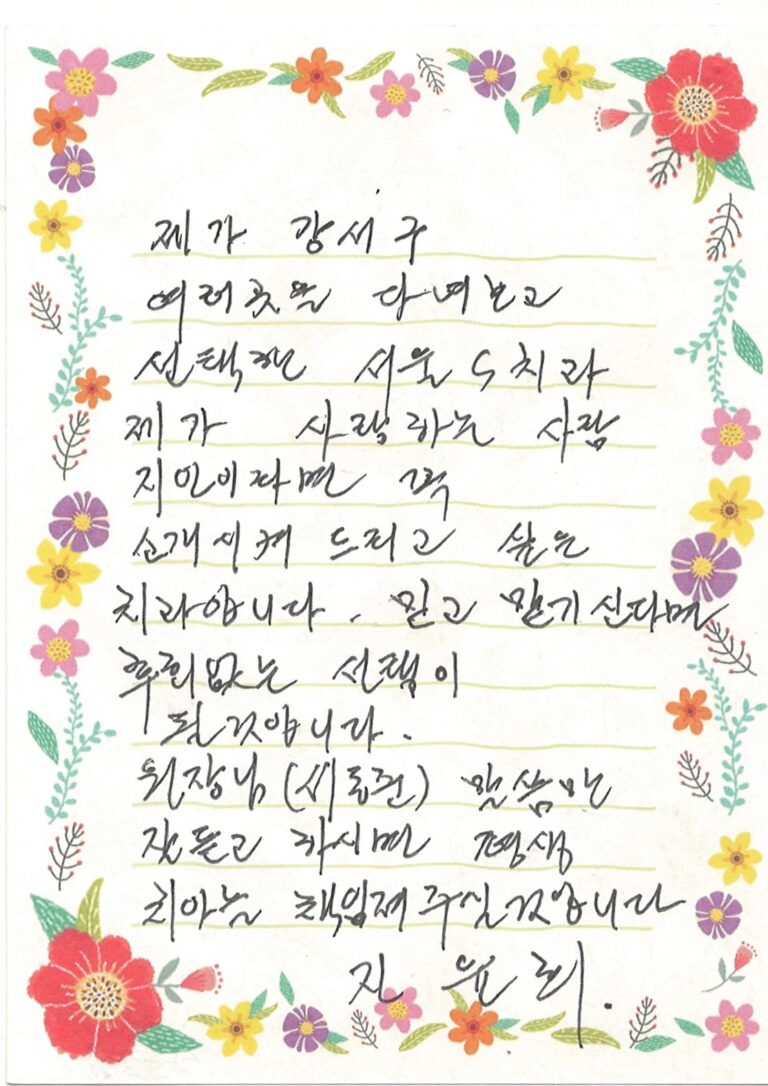 제가 강서구
여러곳을 다녀보고
선택한 서울 S치과
제가 사랑하는 사람
지인이라면 꼭
소개시켜 드리고 싶은
치과입니다. 믿고 맡기신다면
후회없는 선택이
될것입니다.
원장님 말씀만
잘듣고 하시면 평생
치아는 책임져주실것입니다